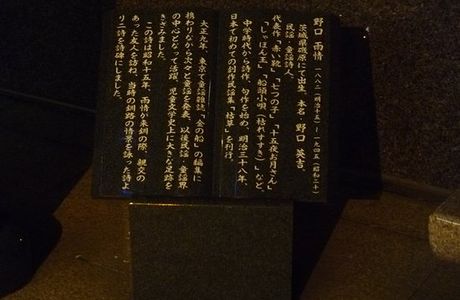 野口 雨情 一八八二(明治十五)~一九四五(昭和二十)
茨城県磯原にて出生、本名 野口 英吉、
民謡・童謡詩人。
代表作「赤い靴」「七つの子」「十五夜お月さん」
「しゃぼん玉」「船頭小唄(枯れすすき)」など、
中学時代から詩作、句作を始め、明治三十八年、
日本で初めての創作民謡集「枯草」を刊行。
大正九年、東京で童謡雑誌「金の船」の編集に
携わりながら次々と童謡を発表、以後民謡・童謡界
の中心となって活躍、児童文学史上に大きな足跡を
きざみました。
この詩は昭和十五年、雨情が来釧の際、親交の
あった友人を訪ね、当時の釧路の情景を詠った詩よ
り二詩を詩碑にしました。